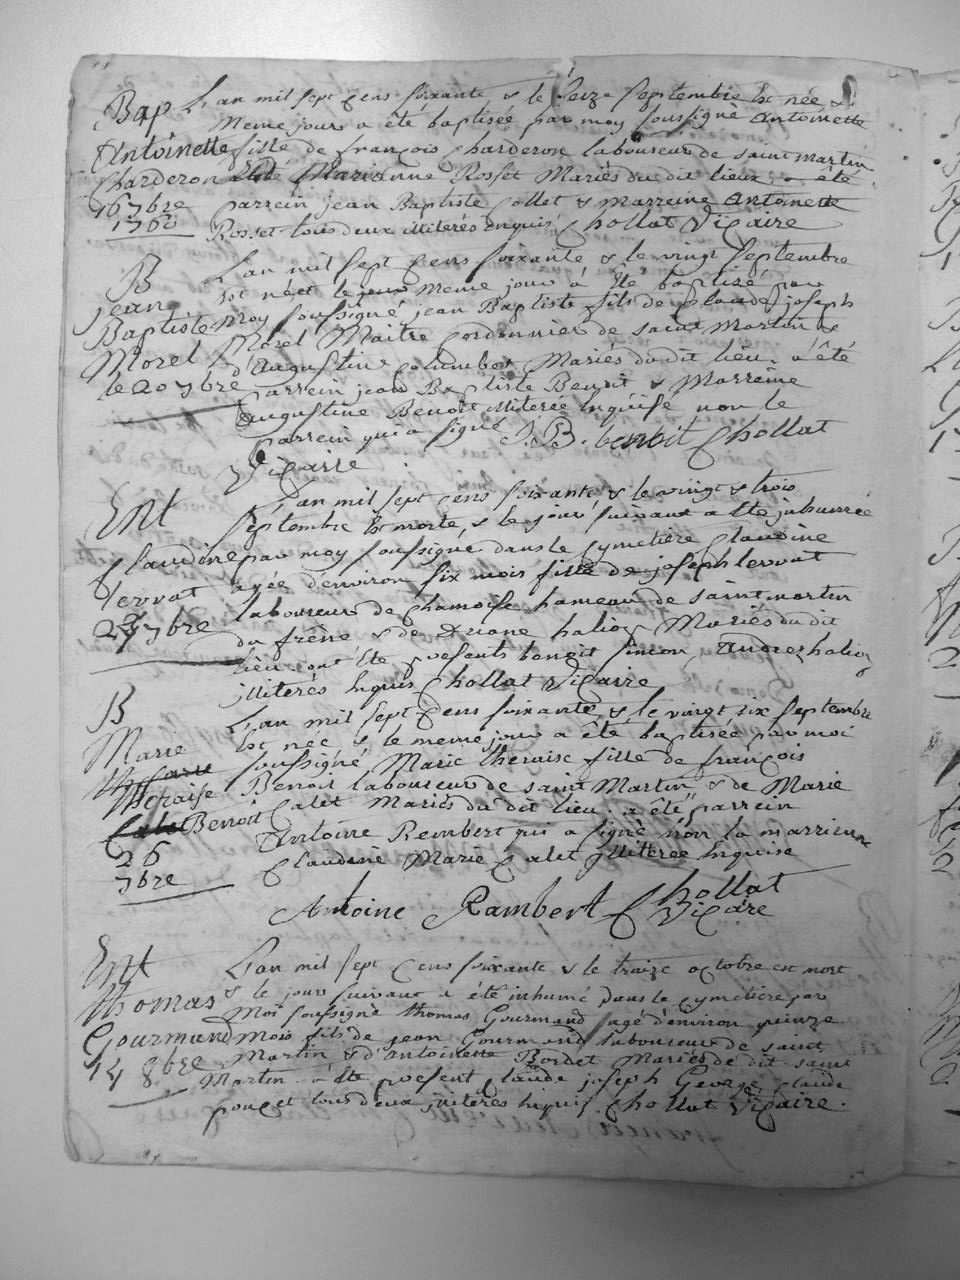 Bap
Antoinette
Charderon
16 7bre
1760
L'an mil sept cens soixante & le seize septembre Est née &
meme jour a été baptisée par moy soussigné Antoinette
fille de françois Charderon laboureur de saint martin
Marianne Rosset Mariés du dit lieu a été
parrein jean Baptiste Collet & marreine Antoinette
Rosset tous deux illiterés enquis Chollat Vicaire
B
jean
Baptiste
Morel
le 20 7bre
L'an mil sept cens soixante & le vingt septembre
Est né et le meme jour a été baptisé par
moy soussigné jean Baptiste fils de Claude joseph
Morel Maitre Cordonnier de saint Martin &
d'Augustine Mariés du dit lieu a été
parrein jean Baptiste Benoit & Marreine
augustine Benoit illiterée Enquise non le
parrein qui a signé J. B. benoit Chollat
Vicaire
Ent
Claudine
Tervat
24 7bre
L'an mil sept cens soixante & le vingt & trois
septembre Est morte, & le jour suivant a été inhumée
par moy soussigné dans le Cymetiere Claudine
agée d'environ six mois fille de joseph tervat
laboureur de hameau de saint martin
du frêne & de Mariés du dit
lieu ont été presents benoit simon, André
illiterés Enquis Chollat Vicaire
B
Marie
theraise
Benoit
26
7bre
L'an mil sept cens soixante & le vingt six septembre
Est née & le meme jour a été baptisée par moi
soussigné Marie theraise fille de françois
Benoit laboureur de saint Martin & de Marie
Calet Mariés du dit lieu, a été parrein
Antoine Rembert qui a signé non la marriene
Claudine Marie Calet illiterée Enquise
Antoine Rambert Chollat
Vicare
Ent
thomas
Gourmand
14 8bre
L'an mil sept cens soixante & le traize octobre est mort
& le jour suivant a été inhumé dans le cymetiere par
Moi soussigné thomas Gourmand agé d'environ quinze
mois fils de jean Gourmand laboureur de saint
Martin & d'Antoinette Bordet Mariés de dit saint
Martin a été present Claude joseph George, Claude
tous deux illiterés Enquis Chollat Vicaire.